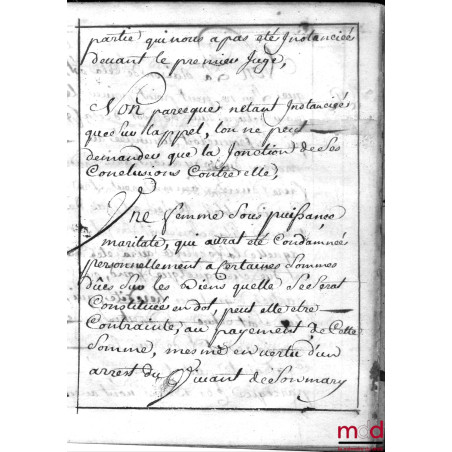 partie qui nous a pas eté Instanciéé
devant le premier Juge,
Non parceque netant Instanciéé
que sur lappel, lon ne peut
demander que la Jonction de ses
Conclusions Contre elle,
Une femme sous puissance
maritale, qui aurat eté Condamnéé
personnellement a Certaines Sommes
dûes sur les Biens quelle se serat
Constituéé en dot, peut elle etre
Contrainte, au payement de Cette
Somme, mesme en vertu d'un
arrest du vivant de Son mary
mod